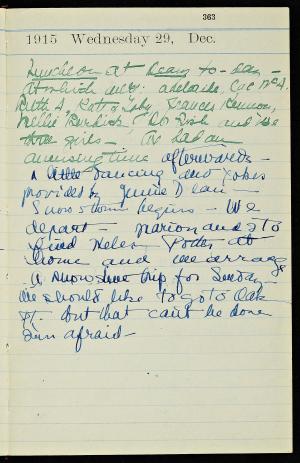 363
1915 Wednesday 29, Dec.
Luncheon at Deans to-day -
At which were: Adelaide,
Ruth A, Kat Toby, Frances Kennon,
Nellie Burdick, Do Fish and we
girls - We had an
amusing time afterwards -
A little dancing and jokes
provided by Jennie Dean -
Snow storm begins - We
depart - Marion and I to
find Helen at
home and we arrange
A snowshoe trip for Sunday
We should like to go to Oak
pt but that can't be done
I'm afraid -